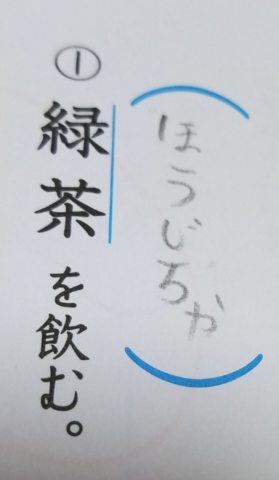 ① 緑茶を飲む。
(ほうじちゃ)